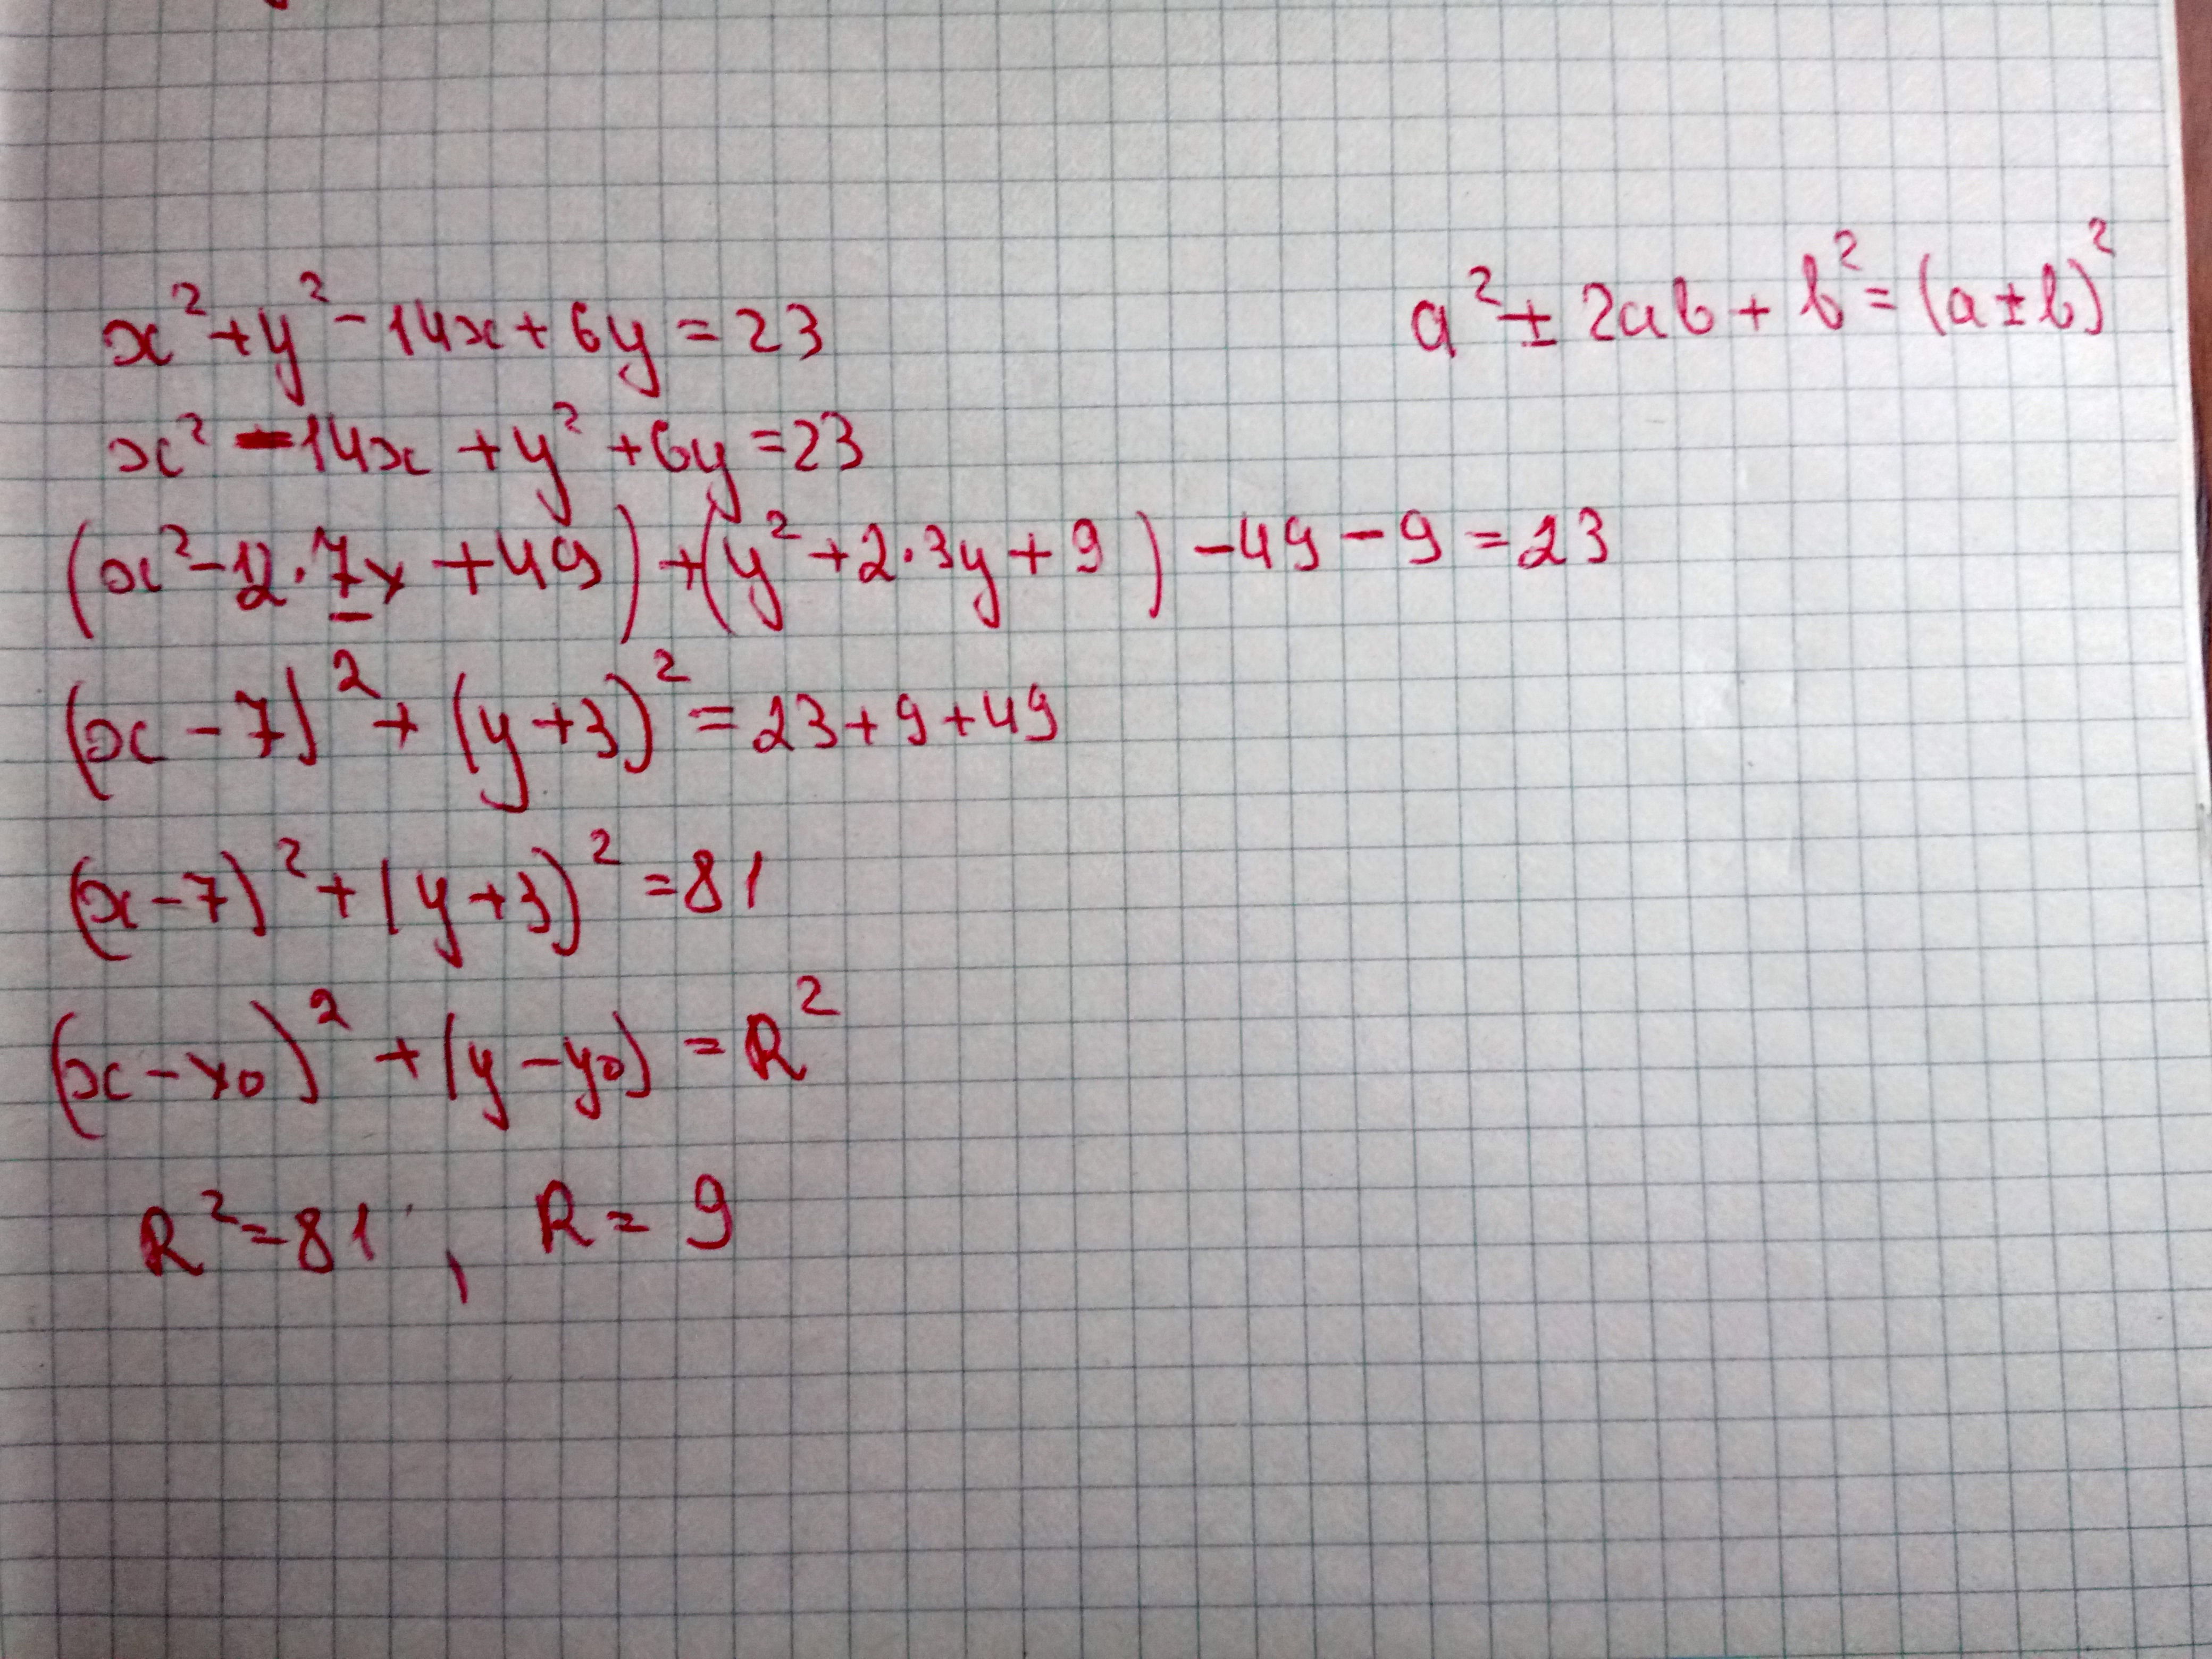 x² + y² - 14x + 6y = 23
a² ± 2ab + b² = (a ± b)²
x² - 14x + y² + 6y = 23
(x² - 2·7x + 49) + (y² + 2·3y + 9) - 49 - 9 = 23
(x - 7)² + (y + 3)² = 23 + 9 + 49
(x - 7)² + (y + 3)² = 81
(x - x0)² + (y - y0) = R²
R² = 81, R = 9